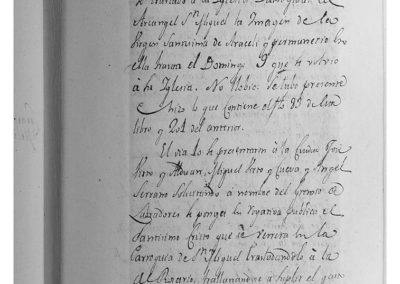 se trasladó à la Iglesia Parroquial de
Arcangel Sn. Miguel la Imagen de la
Virgen Santisima de Araceli y permanecio en
ella hasta el Domingo 9 que se volvio
à su Iglesia. No llobio: se tubo presente
è hizo lo que contiene el fto 85 de este
libro y 201 del anterior.
El dia 10 se presentaron à la Ciudad
Miguel Prto y Cueva y Angel
Serrano Solicitando à nombre del Gremio de
Labradores se ponga en rogativa publica el
Santisimo Cristo que se venera en la
Parroquia de Sn. Miguel trasladandolo à la
del Rosario, hallanandose à suplir el gasto